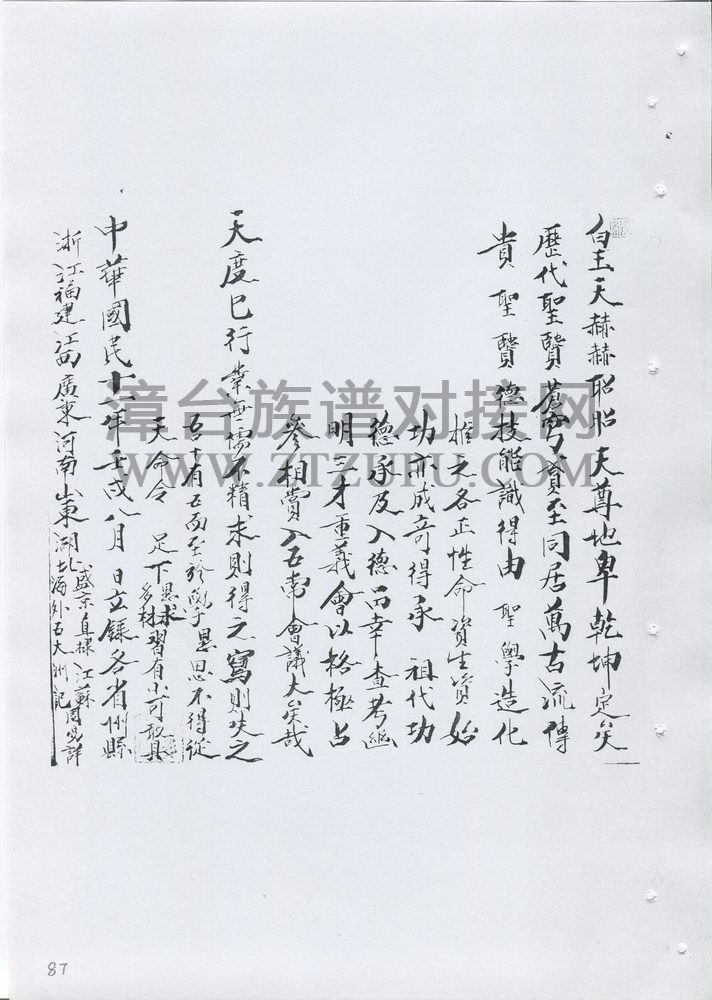 白玉天赫赫昭昭天尊地卑乾坤定矣
歷代聖賢蒼穹賁至同居萬古流傳
貴聖賢德技能識得由聖學造化
推之各正性命資生資始
功亦成奇得承祖代功
德承及入德而幸查考幽
明三才重義會以格極占
參相賞入五常會議大矣哉
天度已行業無需不精求則得之寫則失之
吾十有五而至於學思思不得從
天命令足下思求
多材習有不可敢具
中華國民十一年壬戌八月日立錄各省州縣
浙江福建江西廣東河南山東湖北
盛京直棣江蘇
海外五大洲記
漳台族谱对接网
WWW.ZTZUPU.COM
87